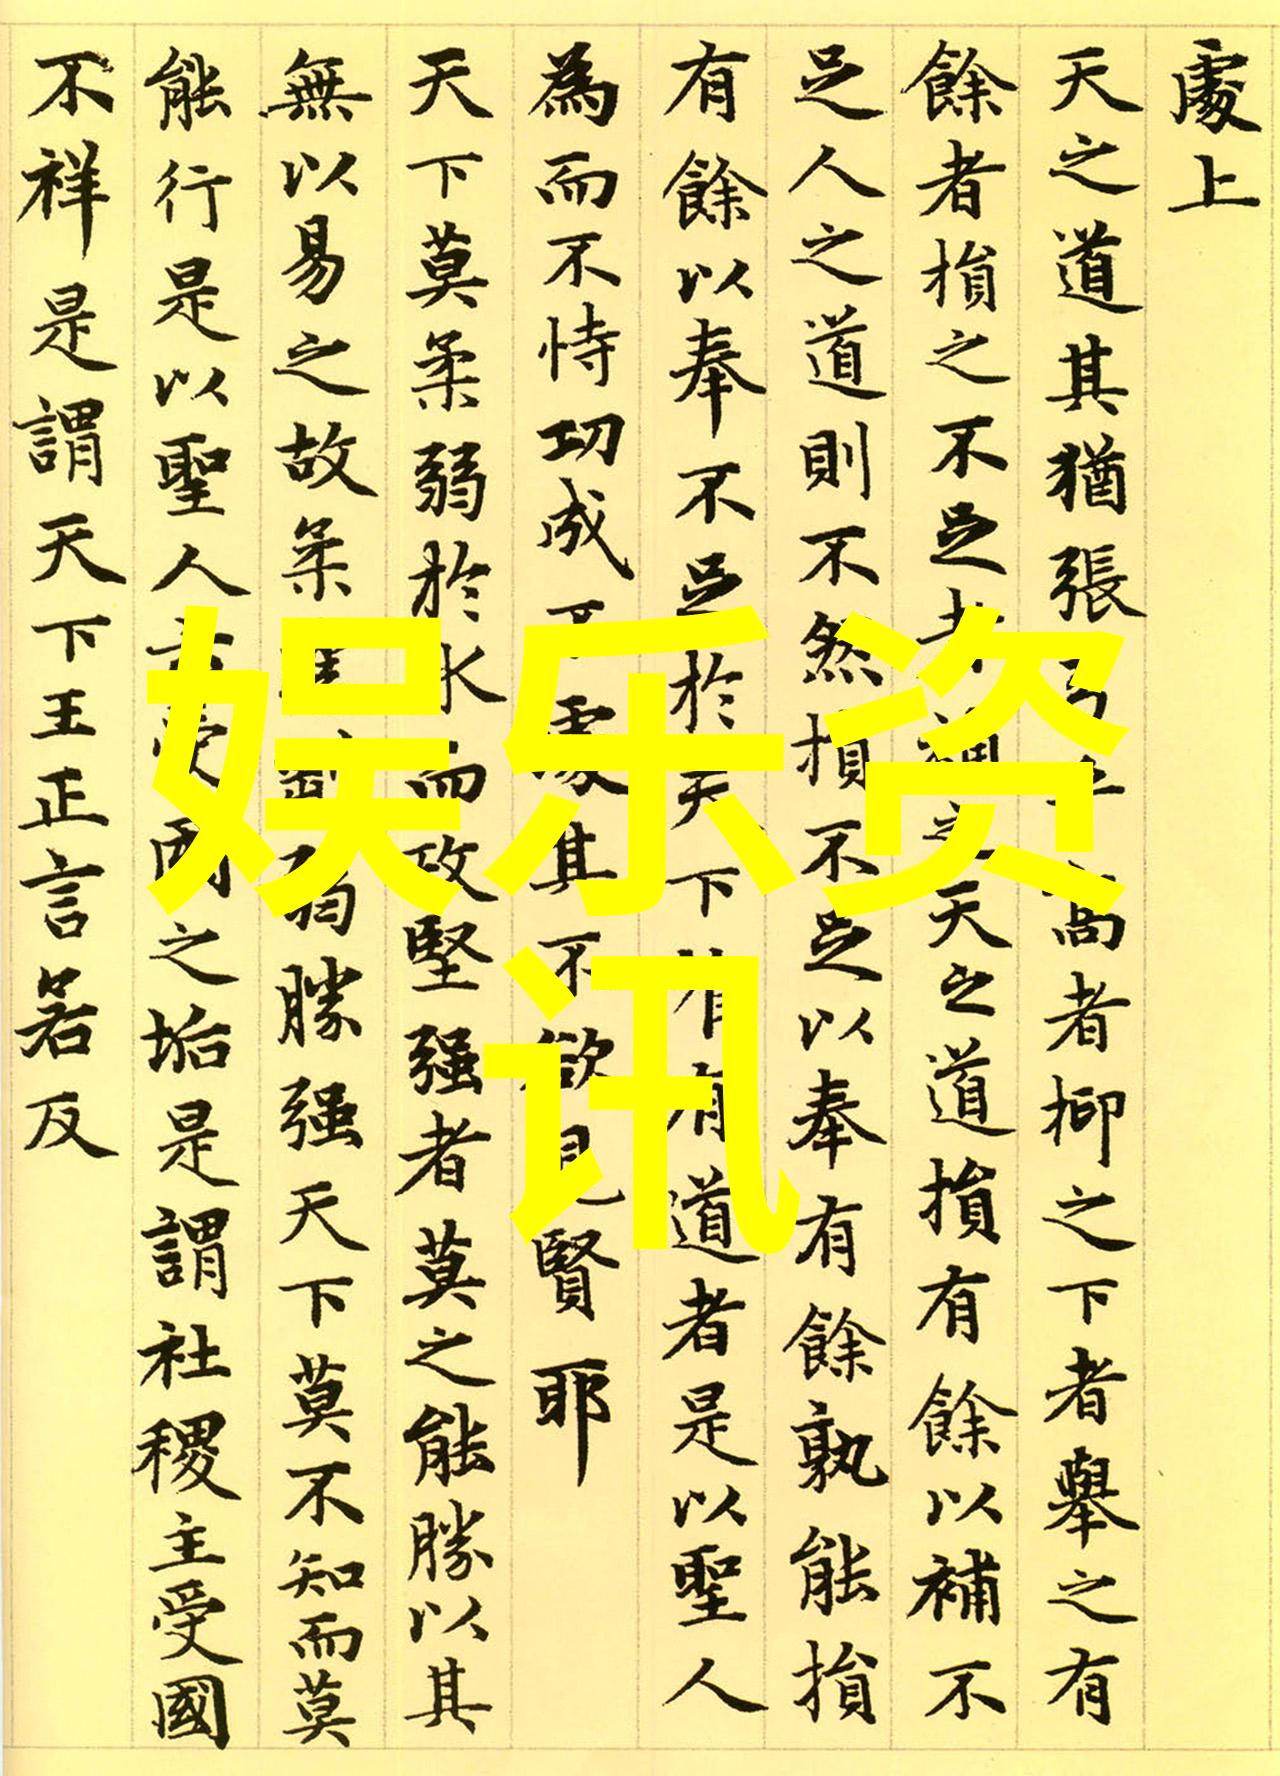 處上
天之道其猶張弓乎高者抑之下者舉之有
餘者損之不足者補之天之道損有餘以補不
足人之道則不然損不足以奉有餘孰能損
有餘以奉不足於天下有道者是以聖人
為而不恃功成不處其不欲見賢耶
天下莫柔弱於水而攻堅强者莫之能勝以其
無以易之故柔勝剛弱勝强天下莫不知而莫
能行是以聖人云受國之垢是謂社稷主受國
不祥是謂天下王正言若反
娱乐资
讯